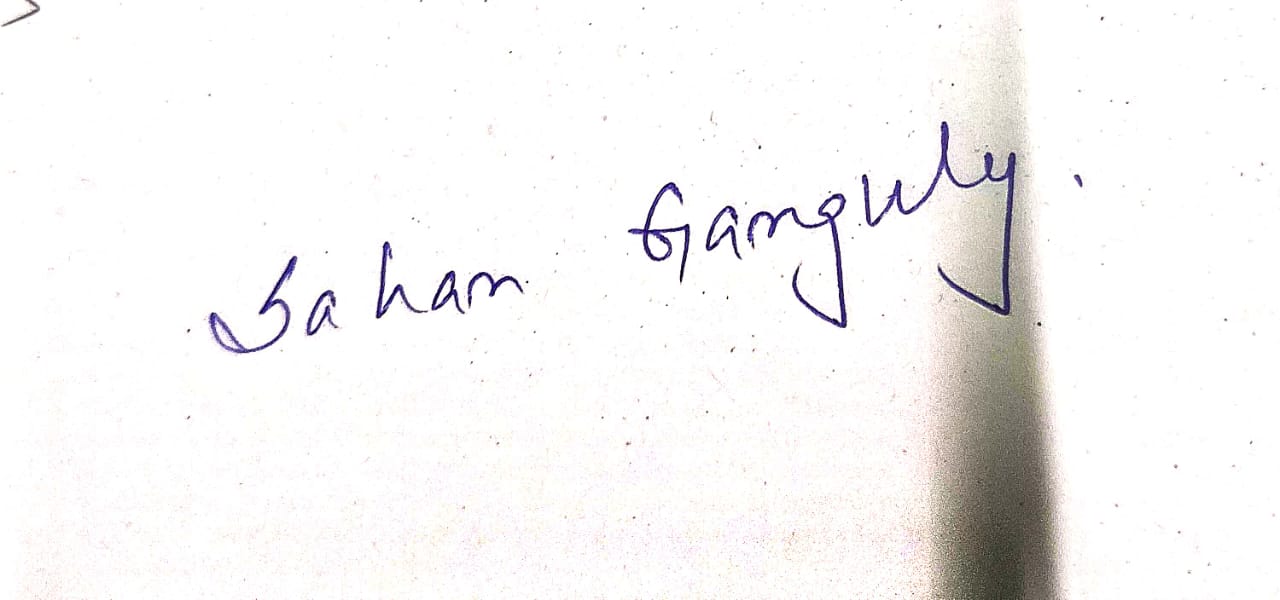 Sahan Ganguly.